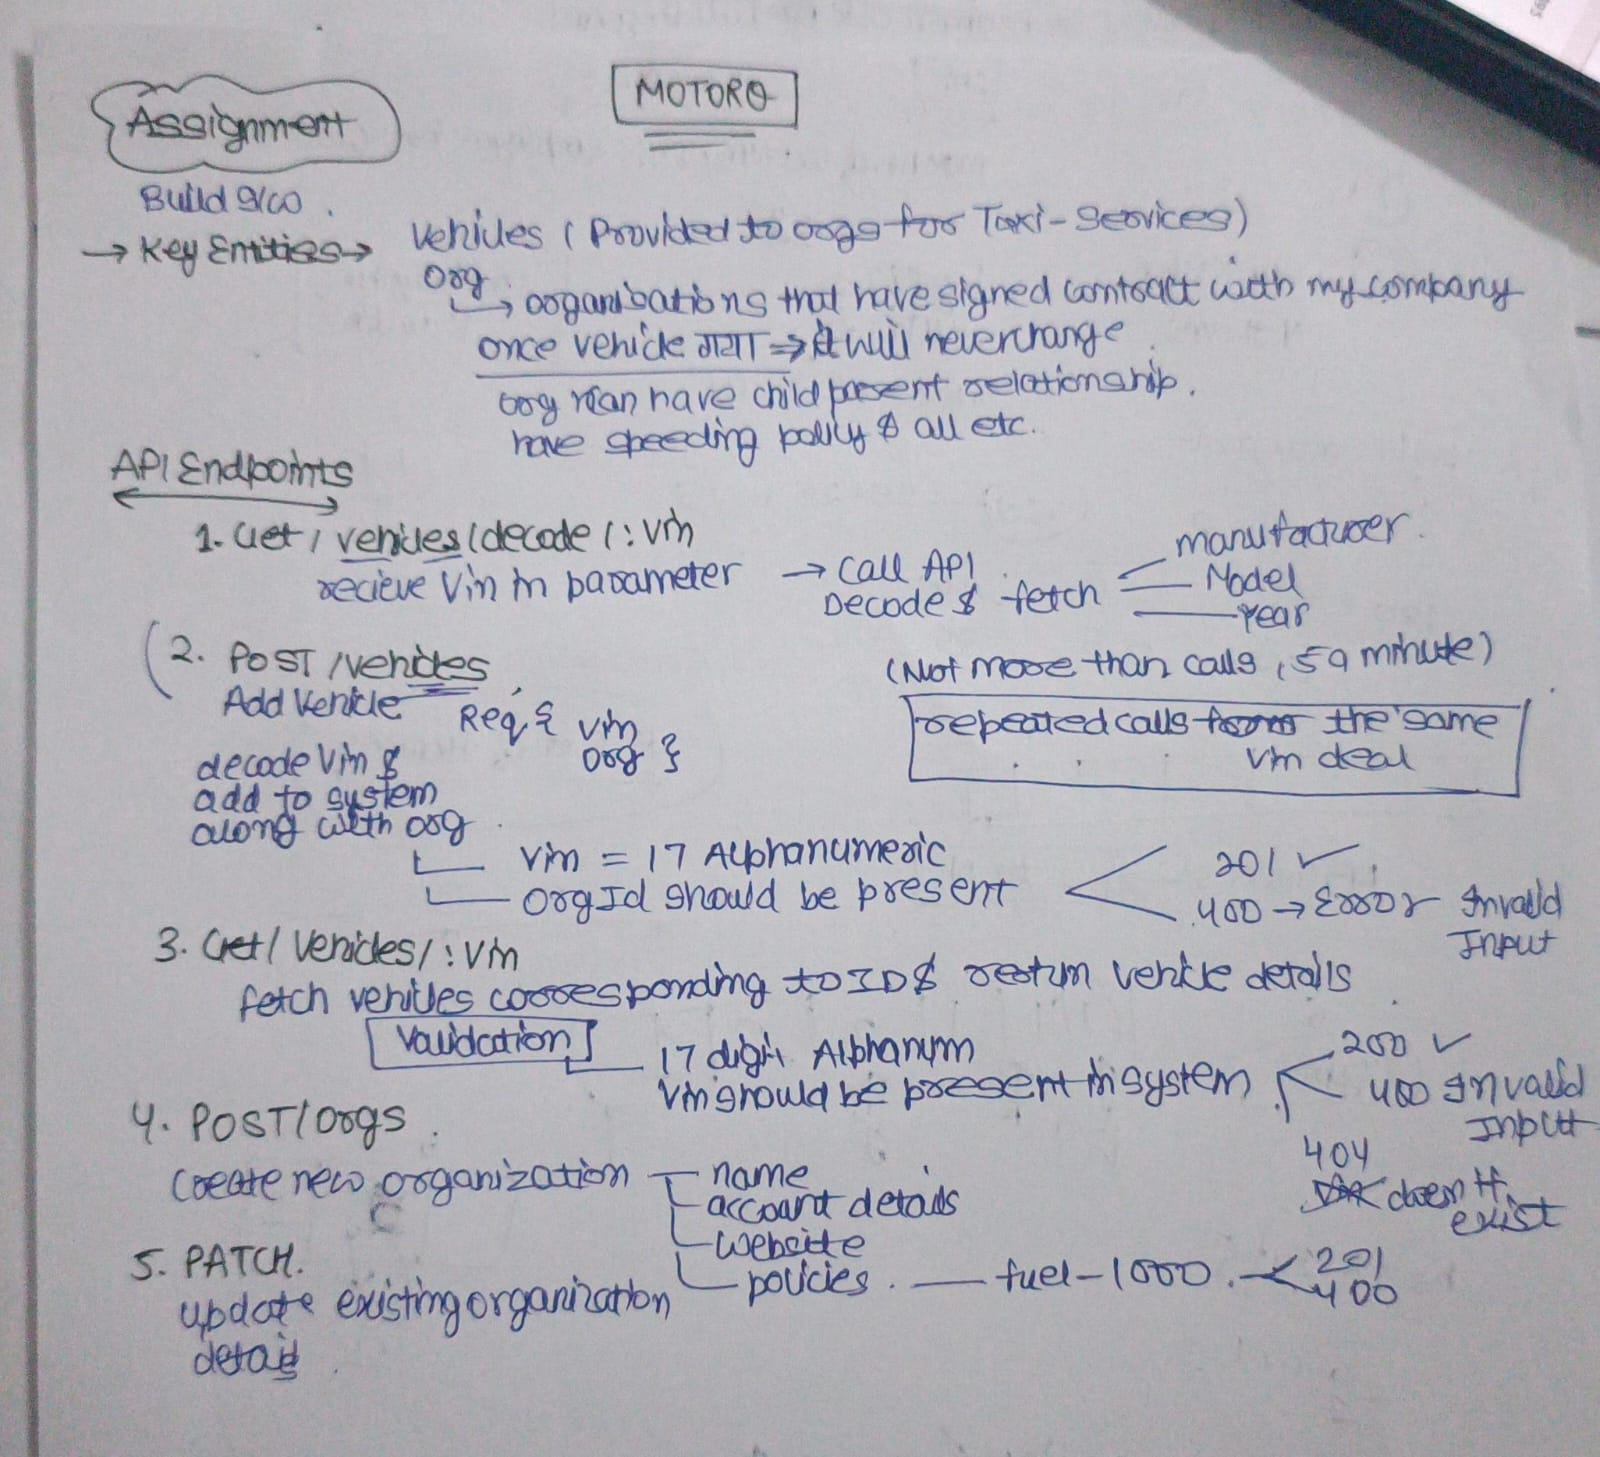 MOTORQ
Assignment
Build s/w.
→ Key Entities → Vehicles (Provided to orgs for Taxi-Services)
Org
↳ organisations that have signed contract with my company
once vehicle गया ⇒ it will never change
org can have child parent relationship.
have speeding policy & all etc.
API Endpoints
1. Get / vehicles / decode / : Vin
recieve Vin in parameter → Call API
Decode & fetch
manufacturer.
Model
Year
2. POST /vehicles
(Not more than calls, 5 a minute)
Add Vehicle
Req { Vin
Org }
repeated calls the same
Vin deal
decode Vin &
add to system
along with org
Vin = 17 Alphanumeric
OrgId should be present
201 ✓
400 → Error Invalid
Input
3. Get / Vehicles / : Vin
fetch vehicles corresponding to ID & return vehicle details
Validation
17 digit Alphanum
Vin should be present in system
200 ✓
400 Invalid
Input
404
doesn't
exist
4. POST / Orgs
Create new organization
name
account details
website
policies. — fuel - 1000.
201
400
5. PATCH.
update existing organization
details